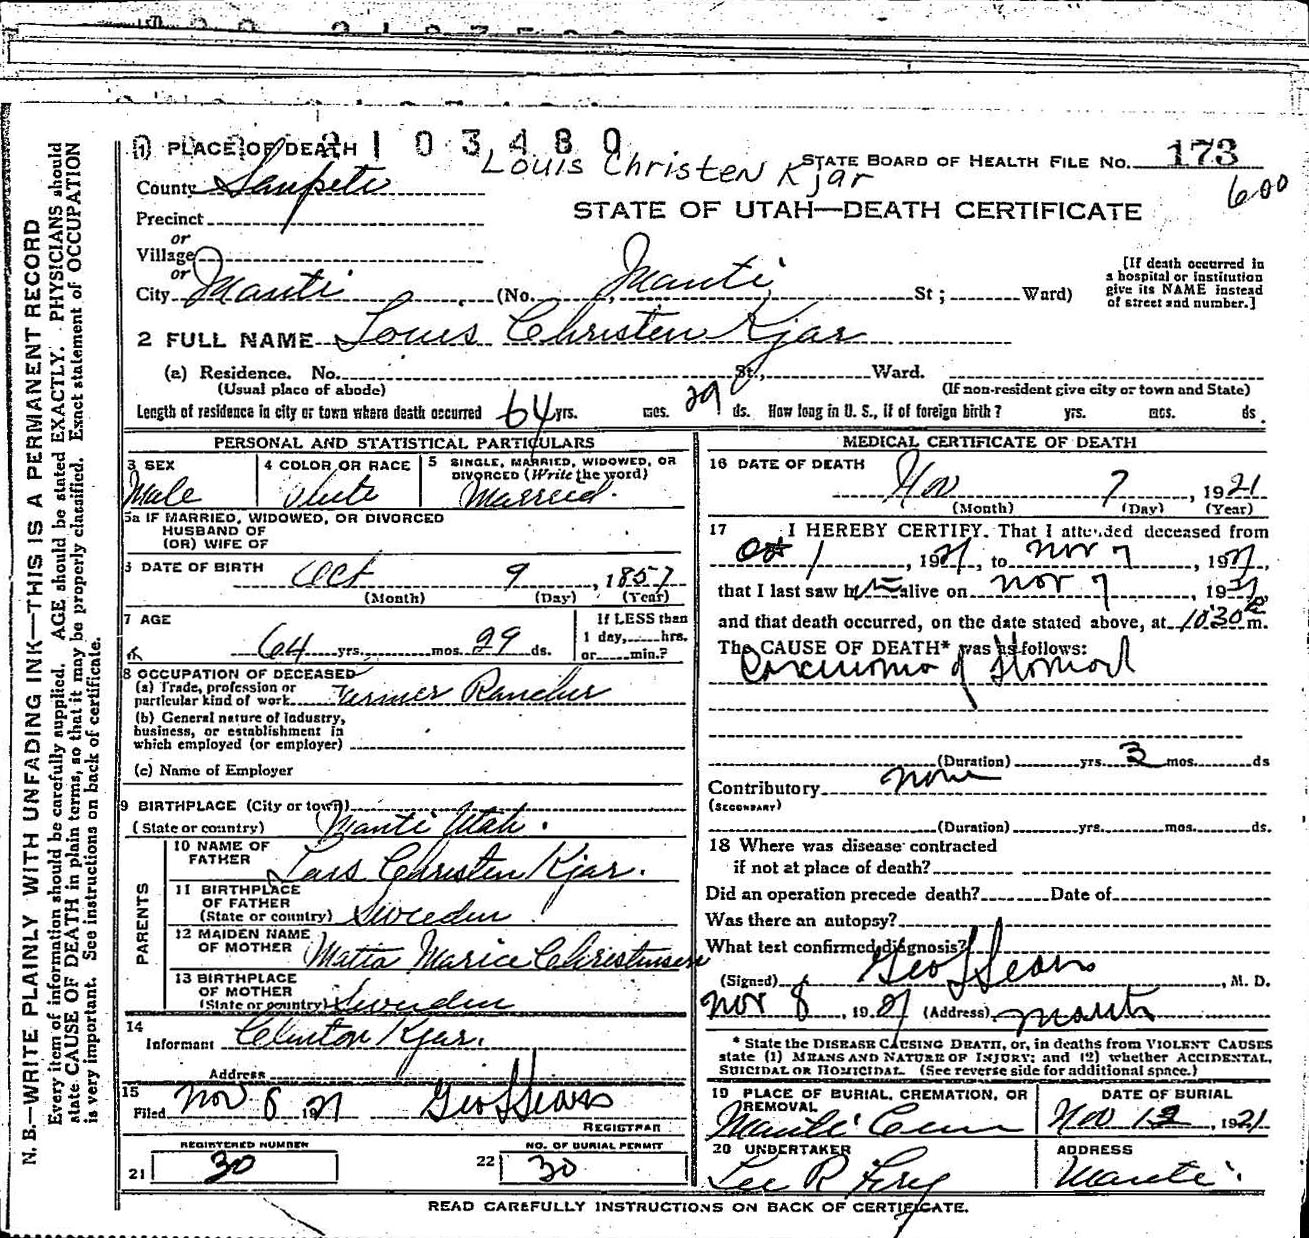 2103480
(1) PLACE OF DEATH
Louis Christen Kjar
STATE BOARD OF HEALTH FILE No. 173
600
County Sanpete
STATE OF UTAH—DEATH CERTIFICATE
Precinct
or
Village
or
City Manti (No. Manti, St; Ward)
[If death occurred in
a hospital or institution
give its NAME instead
of street and number.]
2 FULL NAME Louis Christen Kjar
(a) Residence. No. St., Ward.
(Usual place of abode) (If non-resident give city or town and State)
Length of residence in city or town where death occurred 64 yrs. mos. 29 ds. How long in U. S., if of foreign birth? yrs. mos. ds.
PERSONAL AND STATISTICAL PARTICULARS
3 SEX
Male
4 COLOR OR RACE
White
5 SINGLE, MARRIED, WIDOWED, OR
DIVORCED (Write the word)
Married.
5a IF MARRIED, WIDOWED, OR DIVORCED
HUSBAND OF
(OR) WIFE OF
6 DATE OF BIRTH Oct 9, 1857
(Month) (Day) (Year)
7 AGE
64 yrs. mos. 29 ds.
If LESS than
1 day, hrs.
or min.?
8 OCCUPATION OF DECEASED
(a) Trade, profession or
particular kind of work Farmer Rancher
(b) General nature of industry,
business, or establishment in
which employed (or employer)
(c) Name of Employer
9 BIRTHPLACE (City or town)
(State or country) Manti Utah.
PARENTS
10 NAME OF
FATHER Lars Christen Kjar.
11 BIRTHPLACE
OF FATHER
(State or country) Sweden
12 MAIDEN NAME
OF MOTHER Matia Marice Christensen
13 BIRTHPLACE
OF MOTHER
(State or country) Sweden
14
Informant Clinton Kjar.
Address
15
Filed Nov 8 1921 Geo L Sears
REGISTRAR
REGISTERED NUMBER
21 30
NO. OF BURIAL PERMIT
22 30
MEDICAL CERTIFICATE OF DEATH
16 DATE OF DEATH
Nov 7, 1921
(Month) (Day) (Year)
17 I HEREBY CERTIFY. That I attended deceased from
Oct 1, 1921, to Nov 7, 1921,
that I last saw h im alive on Nov 7, 1921,
and that death occurred, on the date stated above, at 10:30 P m.
The CAUSE OF DEATH* was as follows:
Carcinoma of Stomach
(Duration) yrs. 3 mos. ds
Contributory none
(SECONDARY)
(Duration) yrs. mos. ds.
18 Where was disease contracted
if not at place of death?
Did an operation precede death? Date of
Was there an autopsy?
What test confirmed diagnosis?
(Signed) Geo L Sears, M. D.
Nov 8, 1921 (Address) Manti
* State the DISEASE CAUSING DEATH, or, in deaths from VIOLENT CAUSES
state (1) MEANS AND NATURE OF INJURY; and (2) whether ACCIDENTAL,
SUICIDAL OR HOMICIDAL. (See reverse side for additional space.)
19 PLACE OF BURIAL, CREMATION, OR
REMOVAL
Manti Cem
DATE OF BURIAL
Nov 12, 1921
20 UNDERTAKER
Lee R
ADDRESS
Manti.
READ CAREFULLY INSTRUCTIONS ON BACK OF CERTIFICATE.
N. B.—WRITE PLAINLY WITH UNFADING INK—THIS IS A PERMANENT RECORD
Every item of information should be carefully supplied. AGE should be stated EXACTLY. PHYSICIANS should
state CAUSE OF DEATH in plain terms, so that it may be properly classified. Exact statement of OCCUPATION
is very important. See instructions on back of certificate.